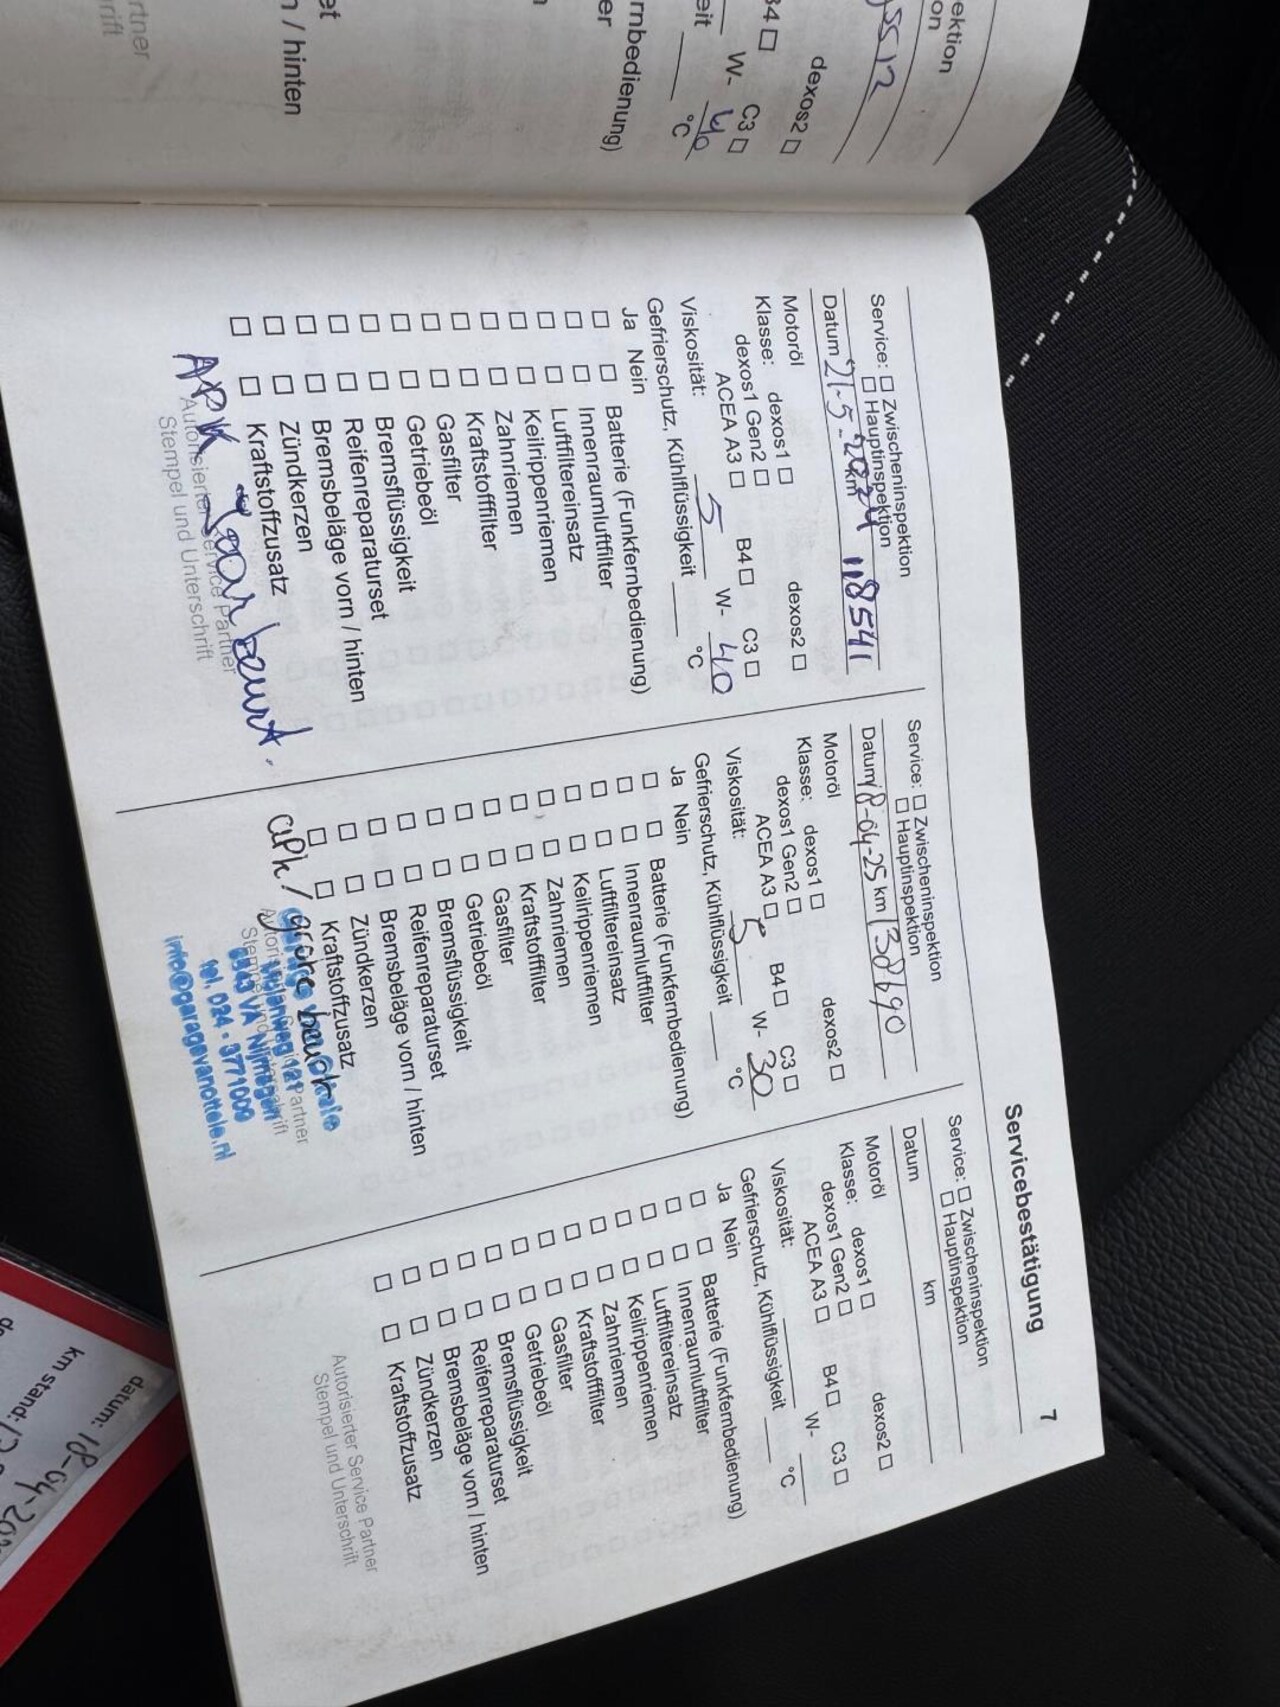 ektion
on
5512
dexos2
B4 C3
W- 40
eit °C
rnbedienung)
er
et
n / hinten
rtner
rift
Servicebestätigung 7
Service: Zwischeninspektion
Hauptinspektion
Datum 21-5-2024 km 118541
Motoröl
Klasse: dexos1 dexos2
dexos1 Gen2
ACEA A3 B4 C3
Viskosität: 5 W- 40
Gefrierschutz, Kühlflüssigkeit °C
Ja Nein
Batterie (Funkfernbedienung)
Innenraumluftfilter
Luftfiltereinsatz
Keilrippenriemen
Zahnriemen
Kraftstofffilter
Gasfilter
Getriebeöl
Bremsflüssigkeit
Reifenreparaturset
Bremsbeläge vorn / hinten
Zündkerzen
Kraftstoffzusatz
APK + Jaarbeurt.
Autorisierter Service Partner
Stempel und Unterschrift
Service: Zwischeninspektion
Hauptinspektion
Datum 18-04-25 km 138690
Motoröl
Klasse: dexos1 dexos2
dexos1 Gen2
ACEA A3 B4 C3
Viskosität: 5 W- 30
Gefrierschutz, Kühlflüssigkeit °C
Ja Nein
Batterie (Funkfernbedienung)
Innenraumluftfilter
Luftfiltereinsatz
Keilrippenriemen
Zahnriemen
Kraftstofffilter
Gasfilter
Getriebeöl
Bremsflüssigkeit
Reifenreparaturset
Bremsbeläge vorn / hinten
Zündkerzen
Kraftstoffzusatz
apk / grote beurt
Partner
6543 VA Nijmegen
tel. 024 - 3771009
info@garagevanottele.nl
Service: Zwischeninspektion
Hauptinspektion
Datum km
Motoröl
Klasse: dexos1 dexos2
dexos1 Gen2
ACEA A3 B4 C3
Viskosität: W-
Gefrierschutz, Kühlflüssigkeit °C
Ja Nein
Batterie (Funkfernbedienung)
Innenraumluftfilter
Luftfiltereinsatz
Keilrippenriemen
Zahnriemen
Kraftstofffilter
Gasfilter
Getriebeöl
Bremsflüssigkeit
Reifenreparaturset
Bremsbeläge vorn / hinten
Zündkerzen
Kraftstoffzusatz
Autorisierter Service Partner
Stempel und Unterschrift
datum: 18-04-20
km stand: